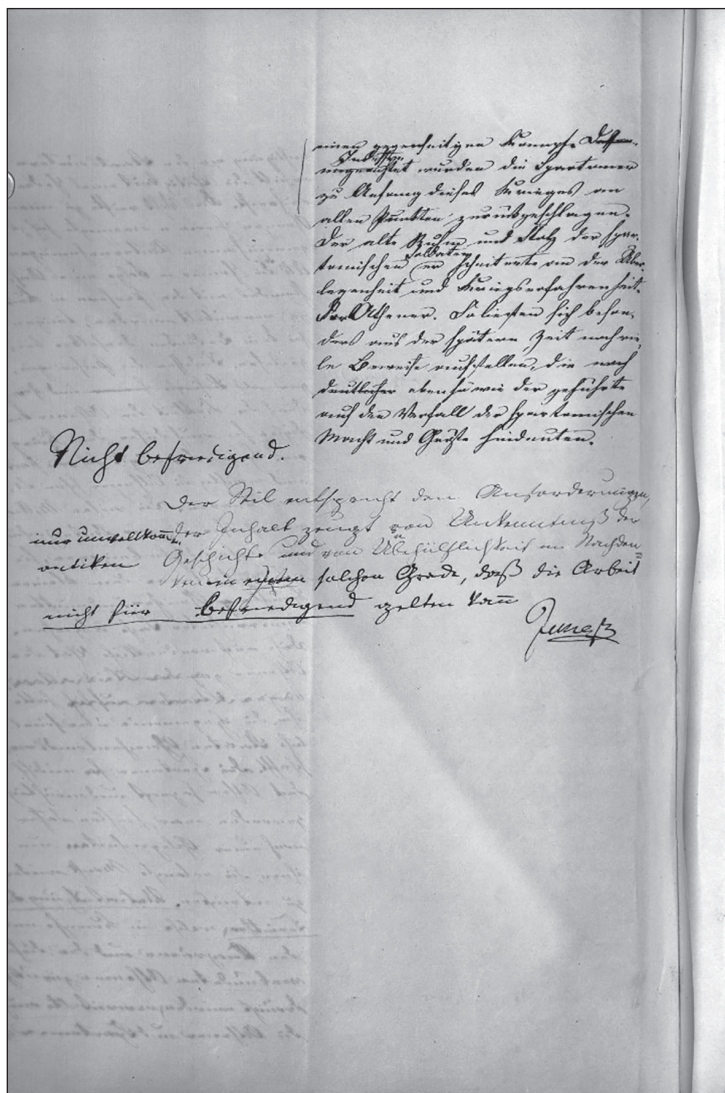 einen gegenseitigen Kampfe
ungerüstet wurden die Spartaner
zu Anfang dieses Krieges an
allen Punkten zurückgeschlagen.
Der alte Ruhm und Stolz der Spar-
Soldaten
tanischen er scheiterte an der Über-
legenheit und Kriegserfahrenheit
der Athener. So ließen sich beson-
ders aus der spätern Zeit noch vie-
le Beweise aufstellen, die noch
deutlicher ebenso wie der geführte
auf den Verfall der spartanischen
Macht und Größe hindeuten.
Nicht befriedigend.
Der Stil entspricht den Anforderungen
nur unvollkomm. der Inhalt zeugt von Unkenntniß der
antiken Geschichte und von Unbehülflichkeit im Nachden=
ken in einem solchen Grade, daß die Arbeit
nicht für befriedigend gelten kann